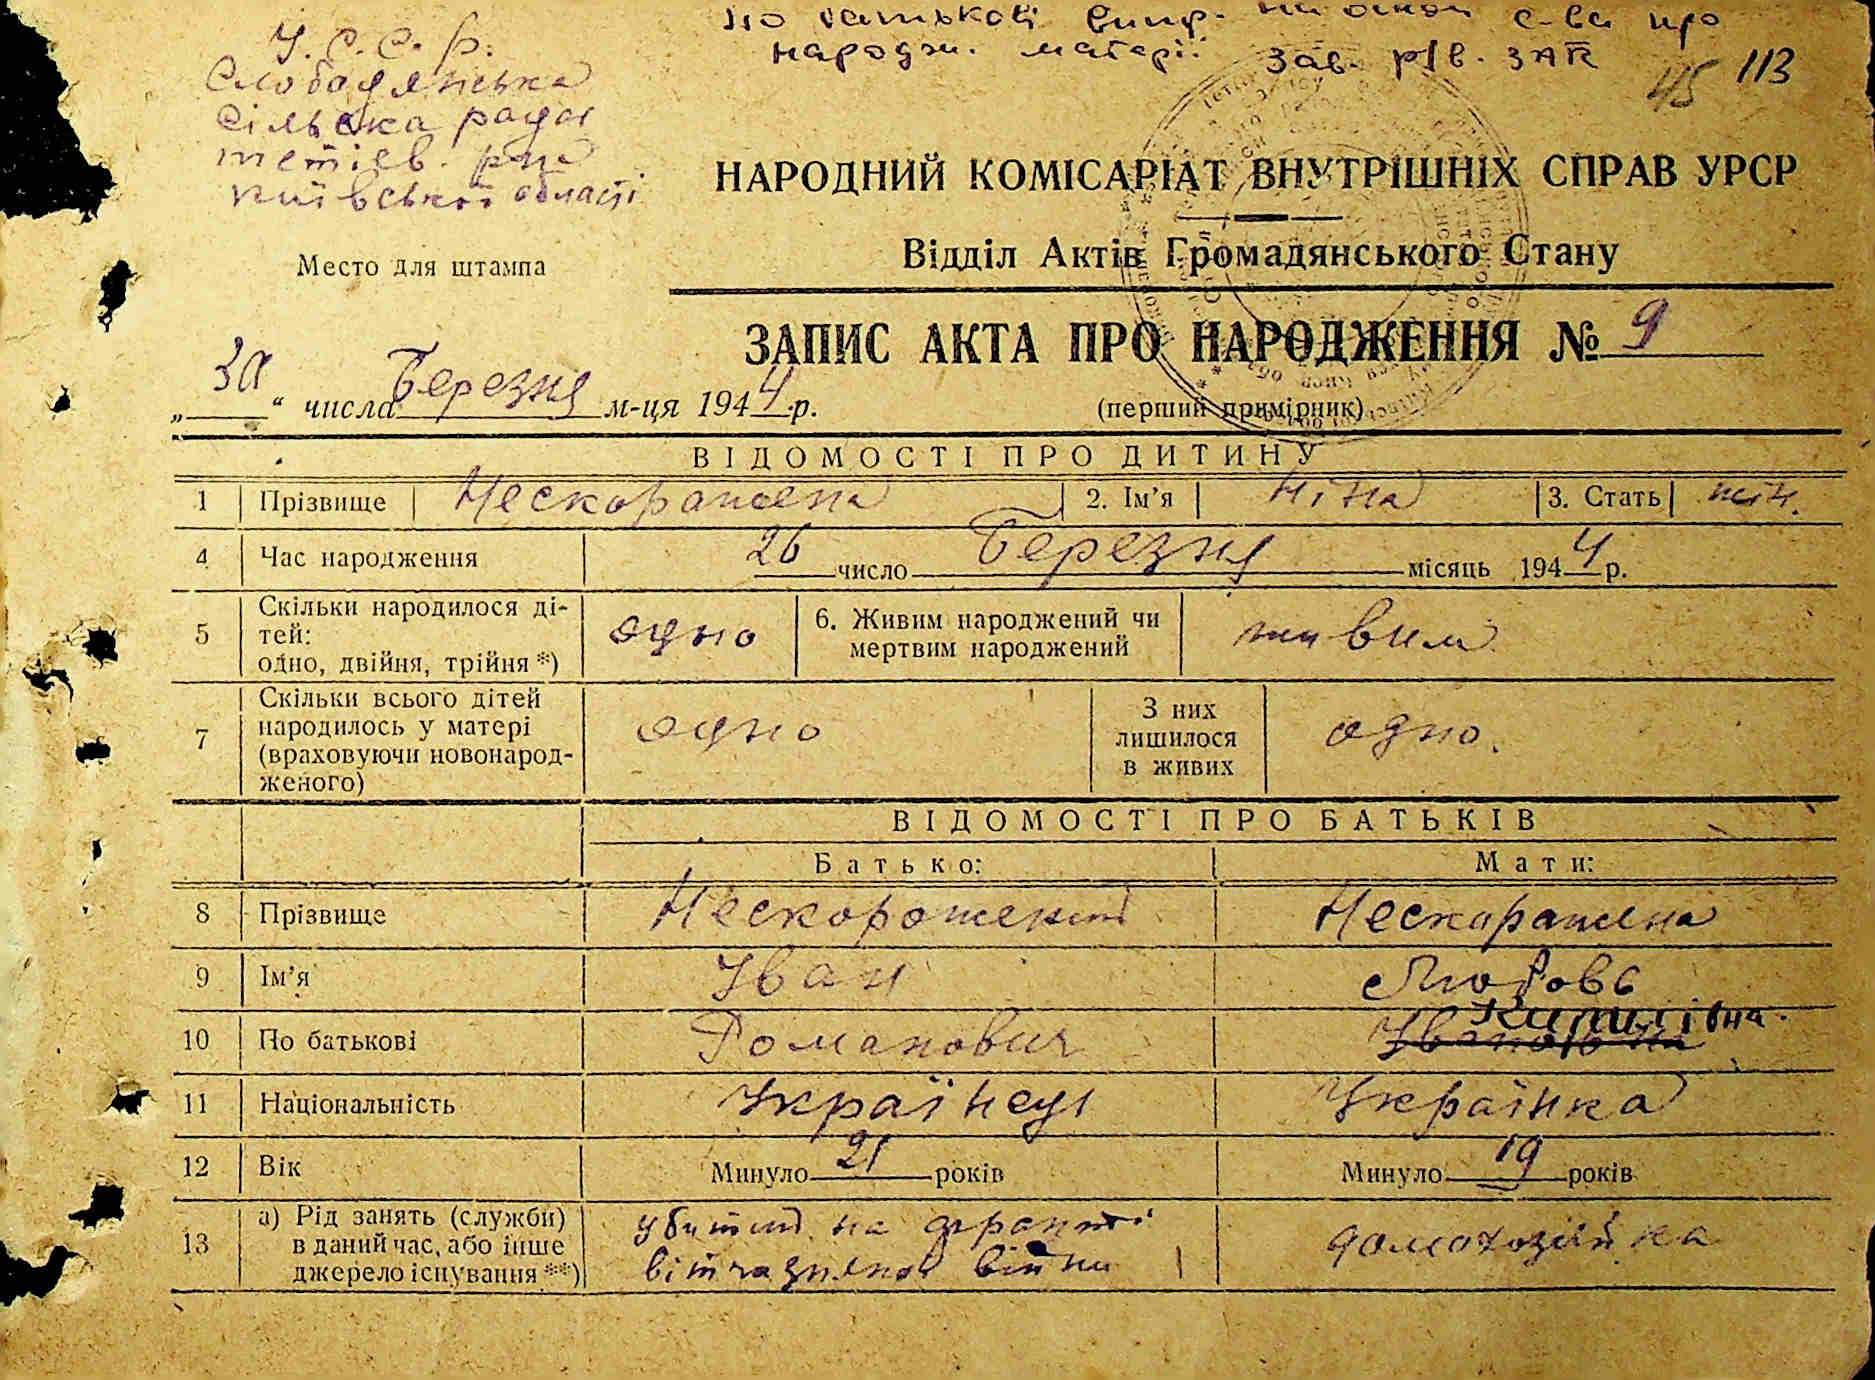 по батькові випр. на основі с-ва про
народж. матері. Зав. р/в. ЗАГС
45 113
У.С.С.р.
Слободянська
сільська рада
тетіев. р-на
київської області
Место для штампа
НАРОДНИЙ КОМІСАРІАТ ВНУТРІШНІХ СПРАВ УРСР
Відділ Актів Громадянського Стану
ЗАПИС АКТА ПРО НАРОДЖЕННЯ № 9
„30“ числа Березня м-ця 1944 р.
(перший примірник)
ВІДОМОСТІ ПРО ДИТИНУ
1 Прізвище Нескорожена 2. Ім’я Ніна 3. Стать жін.
4 Час народження 26 число Березня місяць 1944 р.
5 Скільки народилося ді-
тей:
одно, двійня, трійня *) одно 6. Живим народжений чи
мертвим народжений живим
7 Скільки всього дітей
народилось у матері
(враховуючи новонарод-
женого) одно З них
лишилося
в живих одно.
ВІДОМОСТІ ПРО БАТЬКІВ
Батько: Мати:
8 Прізвище Нескорожений Нескорожена
9 Ім’я Іван Любовь
10 По батькові Романович Івановна Килинівна.
11 Національність Українец Українка
12 Вік Минуло 21 років Минуло 19 років
13 а) Рід занять (служби)
в даний час, або інше
джерело існування **) убитий на фронті
вітчизняної війни домохозяйка